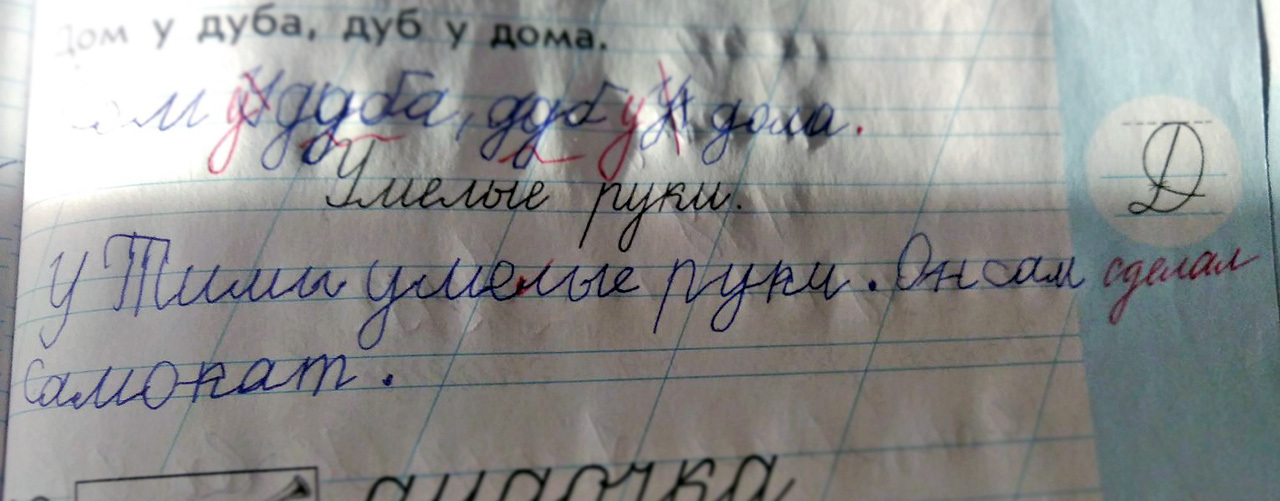 Дом у дуба, дуб у дома.
Дом у дуба, дуб у дома.
Умелые руки.
Д
У Тимы умелые руки. Он сам сделал
самокат.